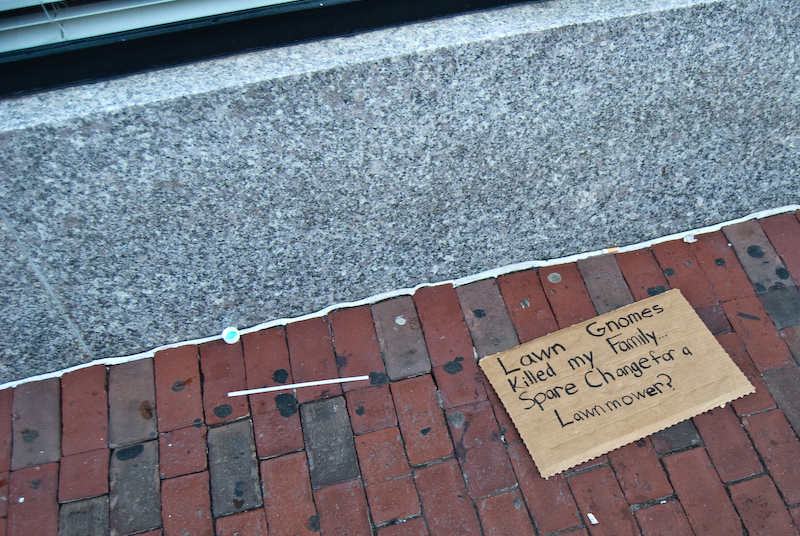 Lawn Gnomes
Killed my Family...
Spare Change for a
Lawnmower?